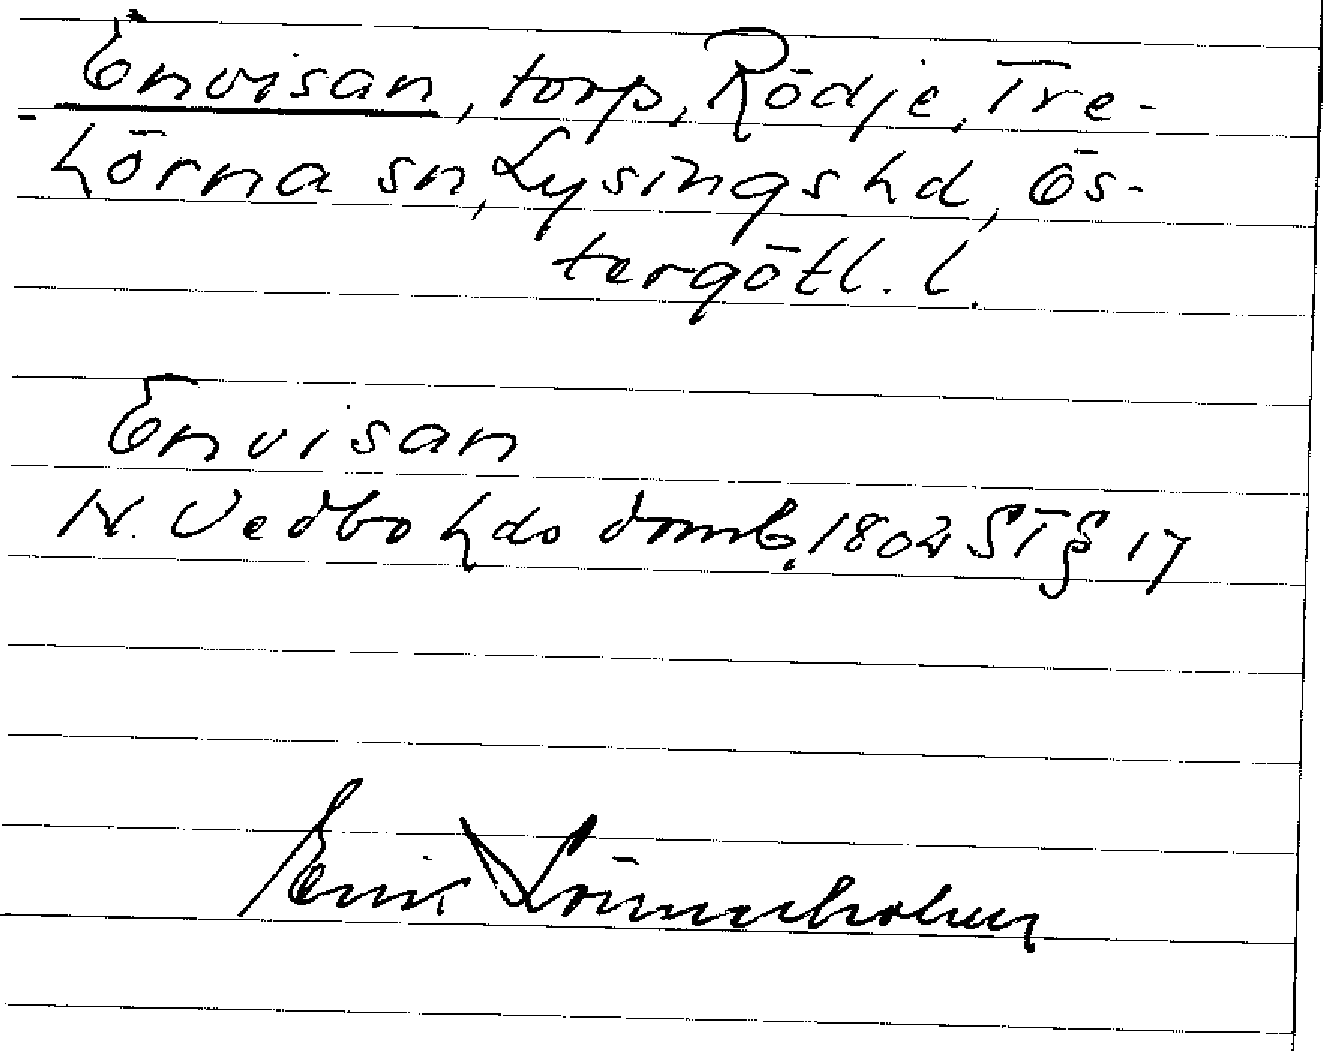 Envisan, torp, Rödje, Tre-
hörna sn, Lysings hd, Ös-
tergötl. l.
Envisan
N. Vedbo hds domb. 1802 ST § 17
Erik Lönnerholm